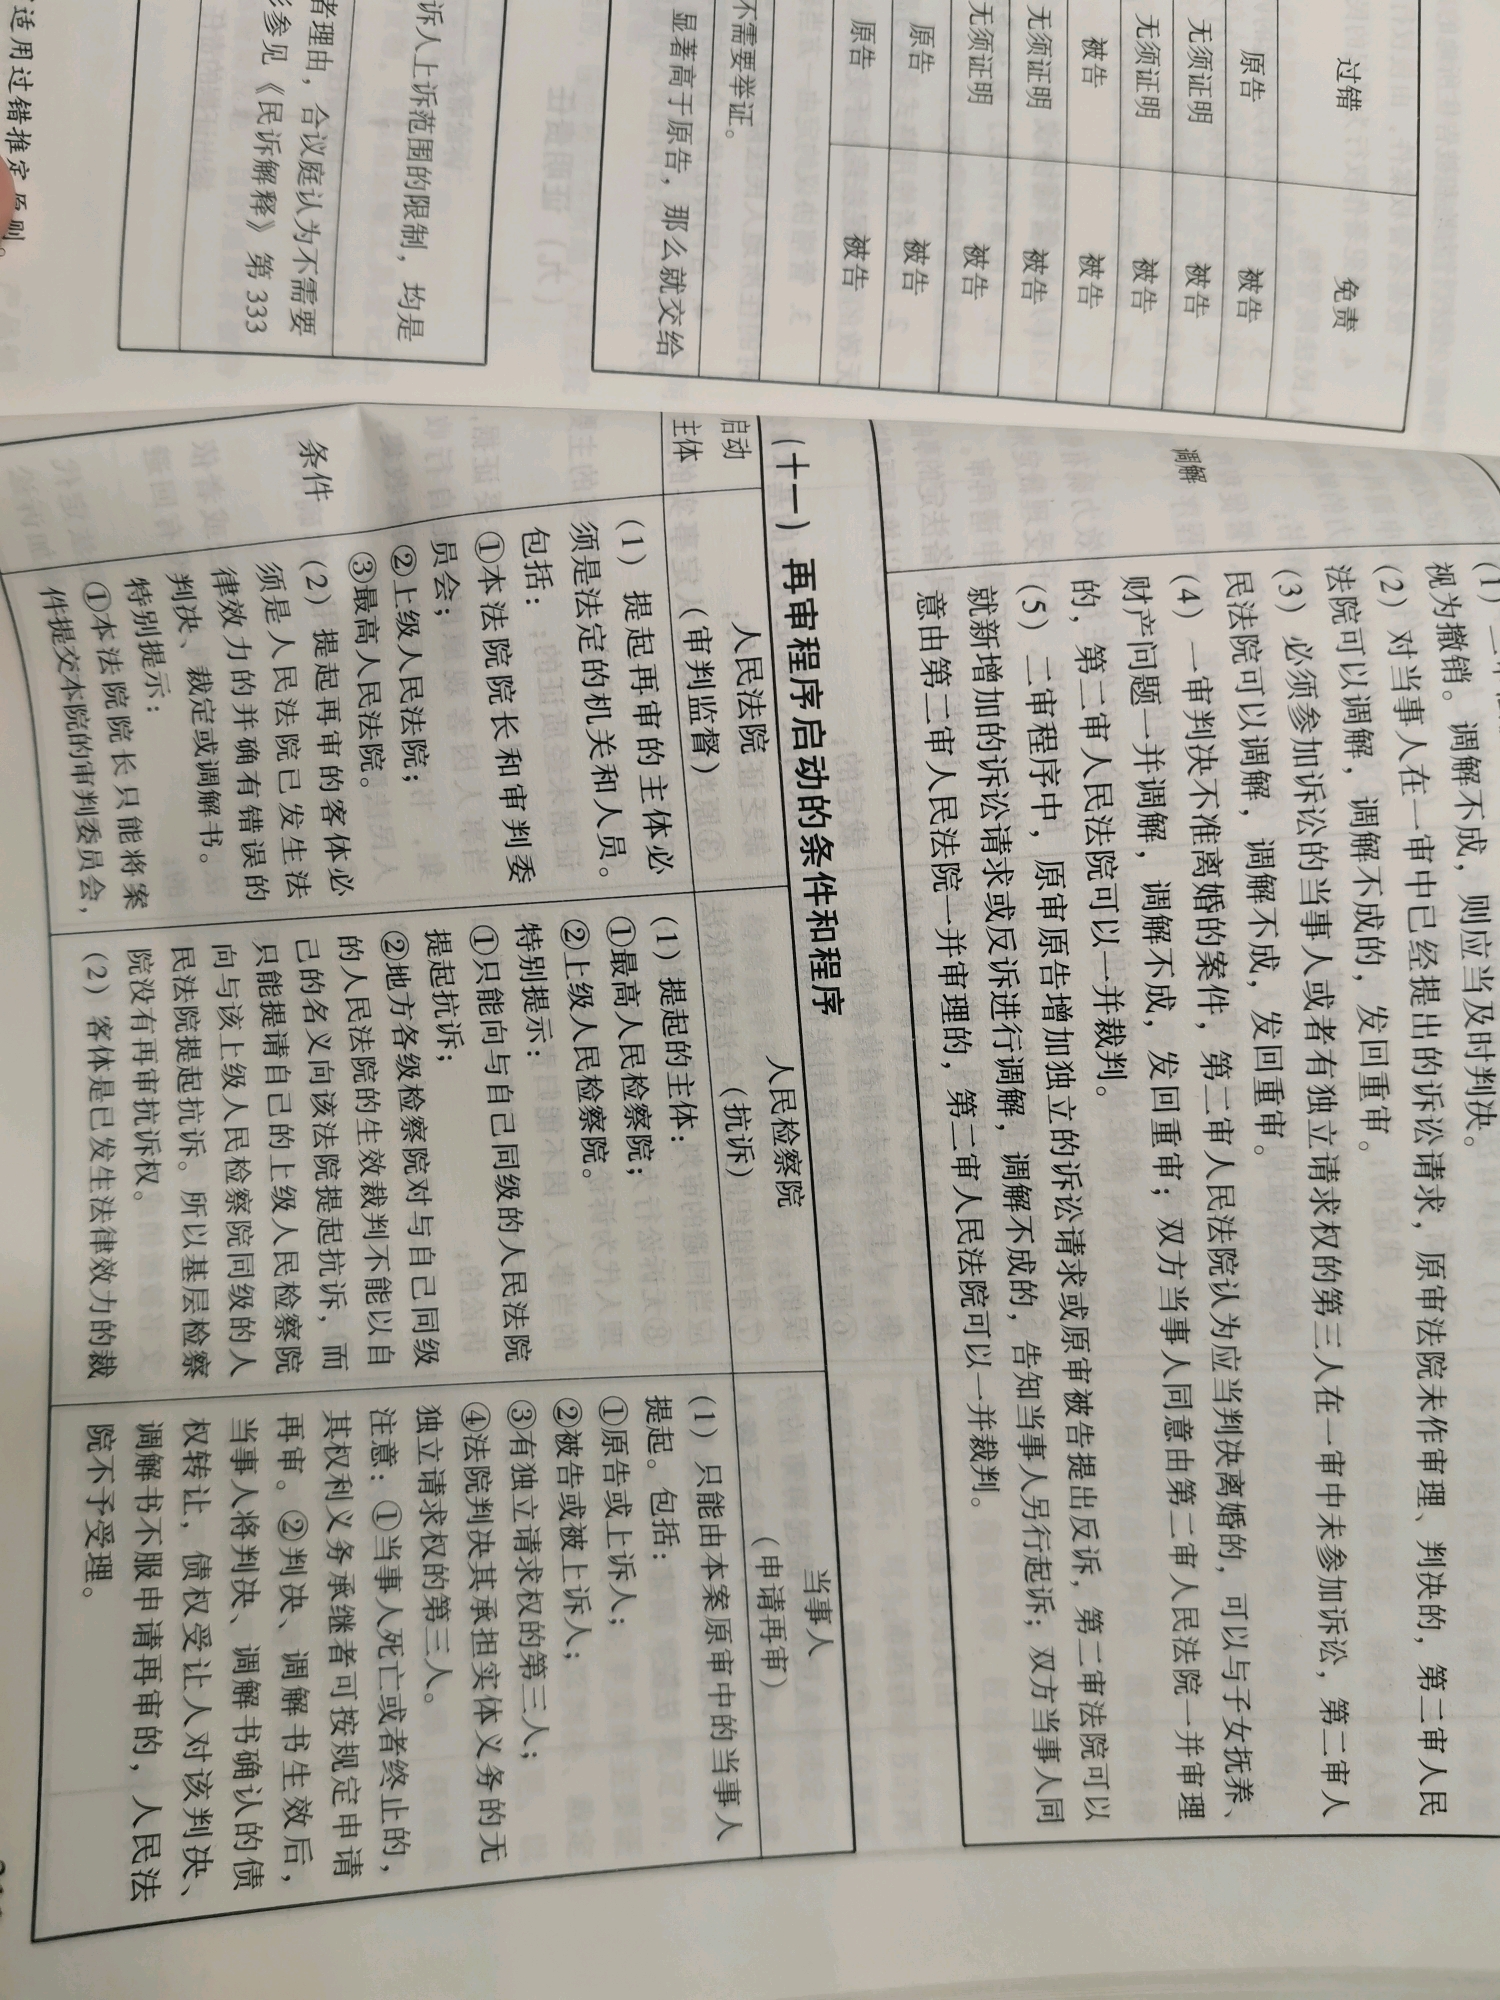 过错
免责
原告
被告
无须证明
被告
无须证明
被告
被告
被告
无须证明
被告
无须证明
被告
原告
被告
原告
被告
不需要举证。
显著高于原告，那么就交给
诉人上诉范围的限制，均是
者理由，合议庭认为不需要
参见《民诉解释》第 333
适用过错推定原则。
调解
视为撤销。调解不成，则应当及时判决。
（2）对当事人在一审中已经提出的诉讼请求，原审法院未作审理、判决的，第二审人民
法院可以调解，调解不成的，发回重审。
（3）必须参加诉讼的当事人或者有独立请求权的第三人在一审中未参加诉讼，第二审人
民法院可以调解，调解不成，发回重审。
（4）一审判决不准离婚的案件，第二审人民法院认为应当判决离婚的，可以与子女抚养、
财产问题一并调解，调解不成，发回重审；双方当事人同意由第二审人民法院一并审理
的，第二审人民法院可以一并裁判。
（5）二审程序中，原审原告增加独立的诉讼请求或原审被告提出反诉，第二审法院可以
就新增加的诉讼请求或反诉进行调解，调解不成的，告知当事人另行起诉；双方当事人同
意由第二审人民法院一并审理的，第二审人民法院可以一并裁判。
（十一）再审程序启动的条件和程序
启动
主体
人民法院
（审判监督）
人民检察院
（抗诉）
当事人
（申请再审）
条件
（1）提起再审的主体必
须是法定的机关和人员。
包括：
①本法院院长和审判委
员会；
②上级人民法院；
③最高人民法院。
（2）提起再审的客体必
须是人民法院已发生法
律效力的并确有错误的
判决、裁定或调解书。
特别提示：
①本法院院长只能将案
件提交本院的审判委员会，
（1）提起的主体：
①最高人民检察院；
②上级人民检察院。
特别提示：
①只能向与自己同级的人民法院
提起抗诉；
②地方各级检察院对与自己同级
的人民法院的生效裁判不能以自
己的名义向该法院提起抗诉，而
只能提请自己的上级人民检察院
向与该上级人民检察院同级的人
民法院提起抗诉。所以基层检察
院没有再审抗诉权。
（2）客体是已发生法律效力的裁
（1）只能由本案原审中的当事人
提起。包括：
①原告或上诉人；
②被告或被上诉人；
③有独立请求权的第三人；
④法院判决其承担实体义务的无
独立请求权的第三人。
注意：①当事人死亡或者终止的，
其权利义务承继者可按规定申请
再审。②判决、调解书生效后，
当事人将判决、调解书确认的债
权转让，债权受让人对该判决、
调解书不服申请再审的，人民法
院不予受理。